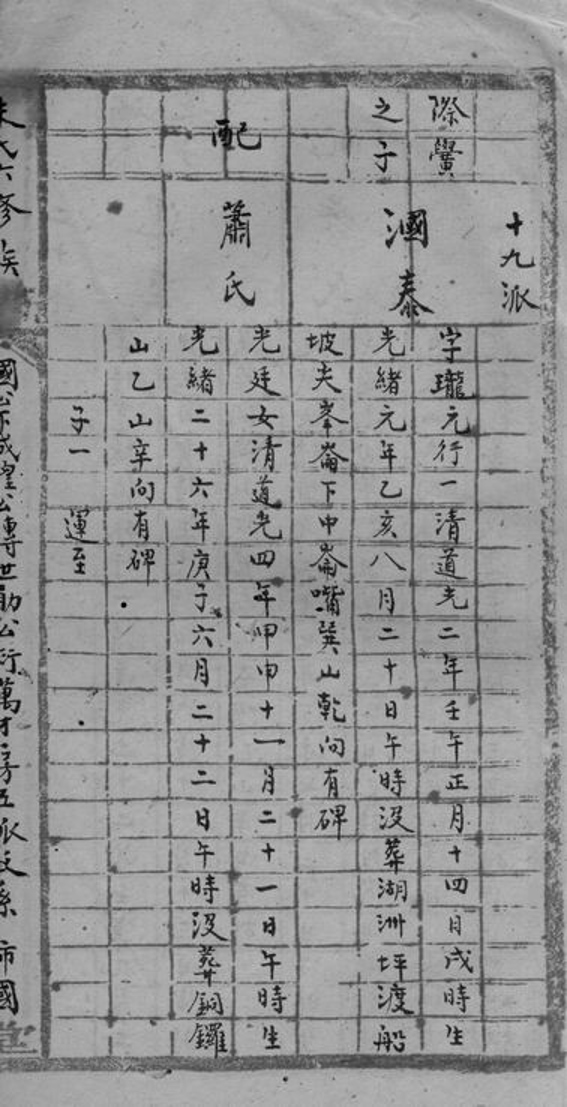 十九派
際黌
之子
溷泰
字瓏元行一清道光二年壬午正月十四日戌時生
光緒元年乙亥八月二十日午時沒葬湖洲坪渡船
坡夫峯崙下中崙嘴巽山乾向有碑
配
蕭氏
光廷女清道光四年甲申十一月二十一日午時生
光緒二十六年庚子六月二十二日午時沒葬銅鑼
山乙山辛向有碑
子一 運至
朱氏六修族
國公亦成望公傳世勛公行萬才房五派支系 市國
堂